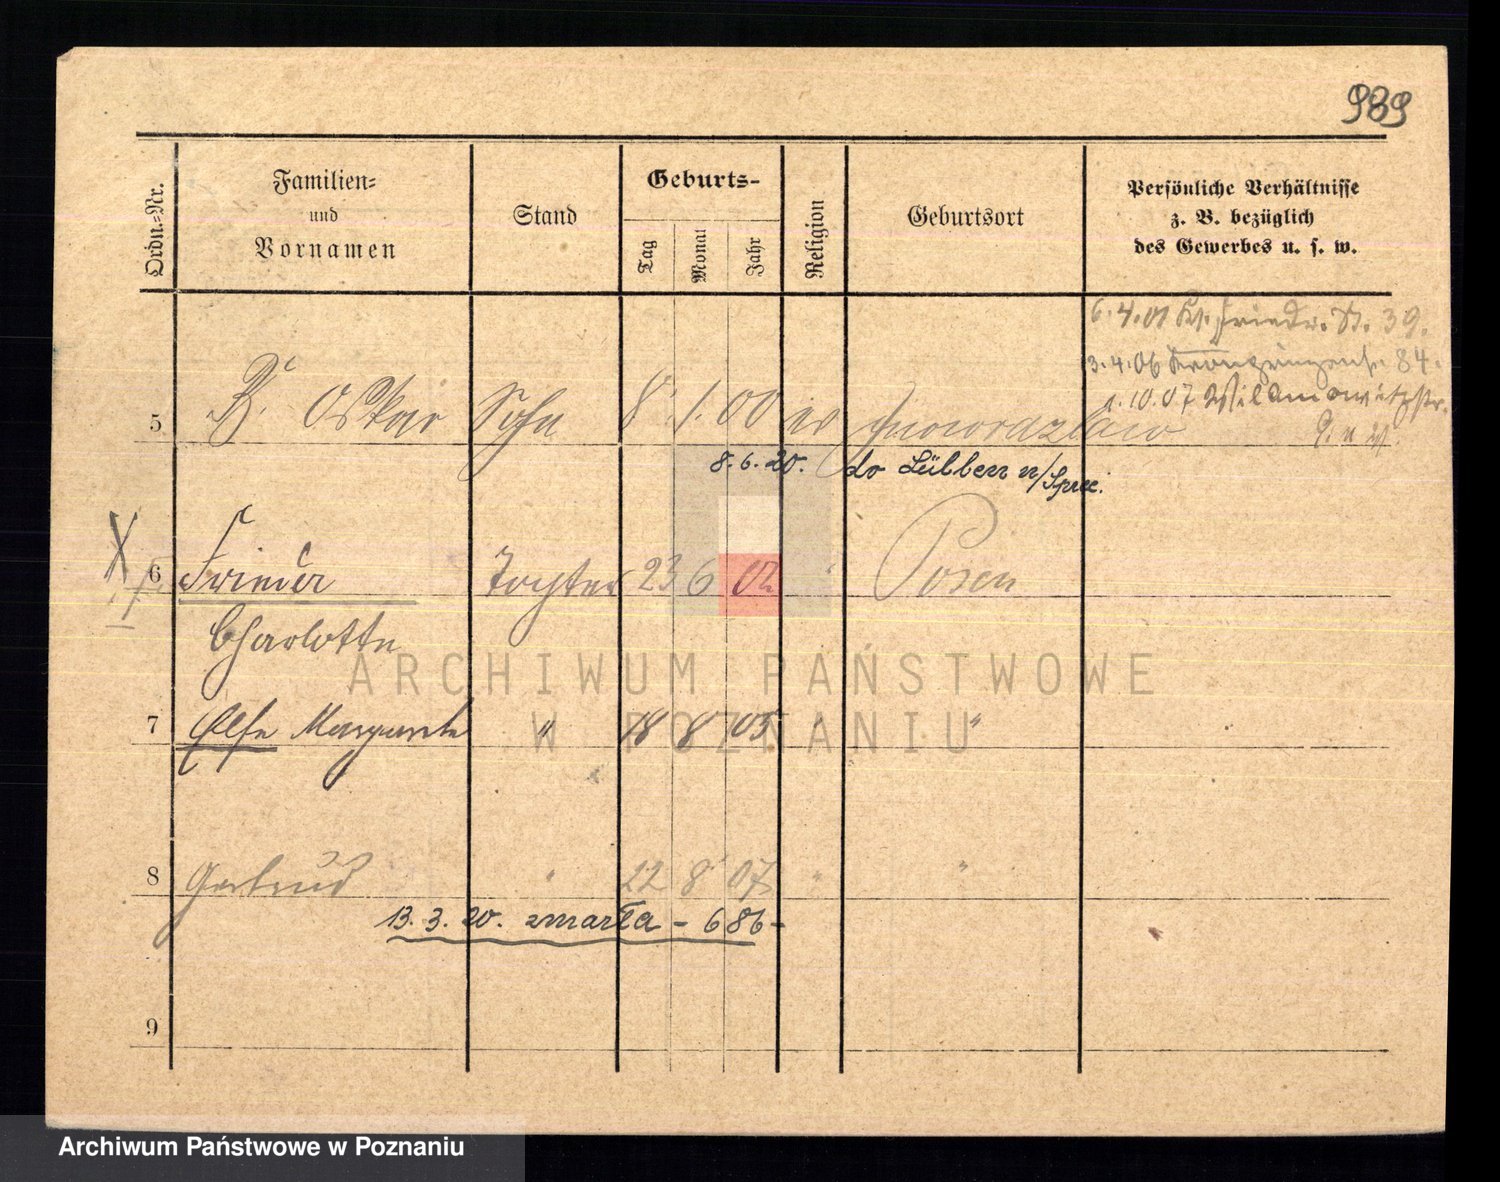 989
Ordn.-Nr.
Familien-
und
Vornamen
Stand
Geburts-
Tag
Monat
Jahr
Religion
Geburtsort
Persönliche Verhältnisse
z. B. bezüglich
des Gewerbes u. s. w.
6.4.01 Friedr. St. 39.
3.4.06 Kronprinzenst. 84.
1.10.07 Willamowitzstr.
5 B. Oskar Sohn 8 1. 00 ev Inowrazlaw
8.6.20. do Lübben n/Spree.
6 Frieda Tochter 23 6 02 " Posen
Charlotte
7 Else Margarete " 18 8 05 " "
8 Gertrud " 22 8 07 " "
13.3.20. zmarła - 686 -
9
ARCHIWUM PAŃSTWOWE
W POZNANIU
Archiwum Państwowe w Poznaniu